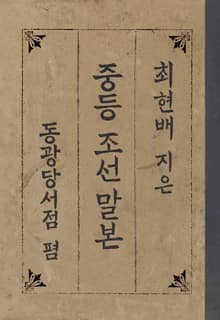 최현배 지은
중등 조선말본
동광당서점 폄